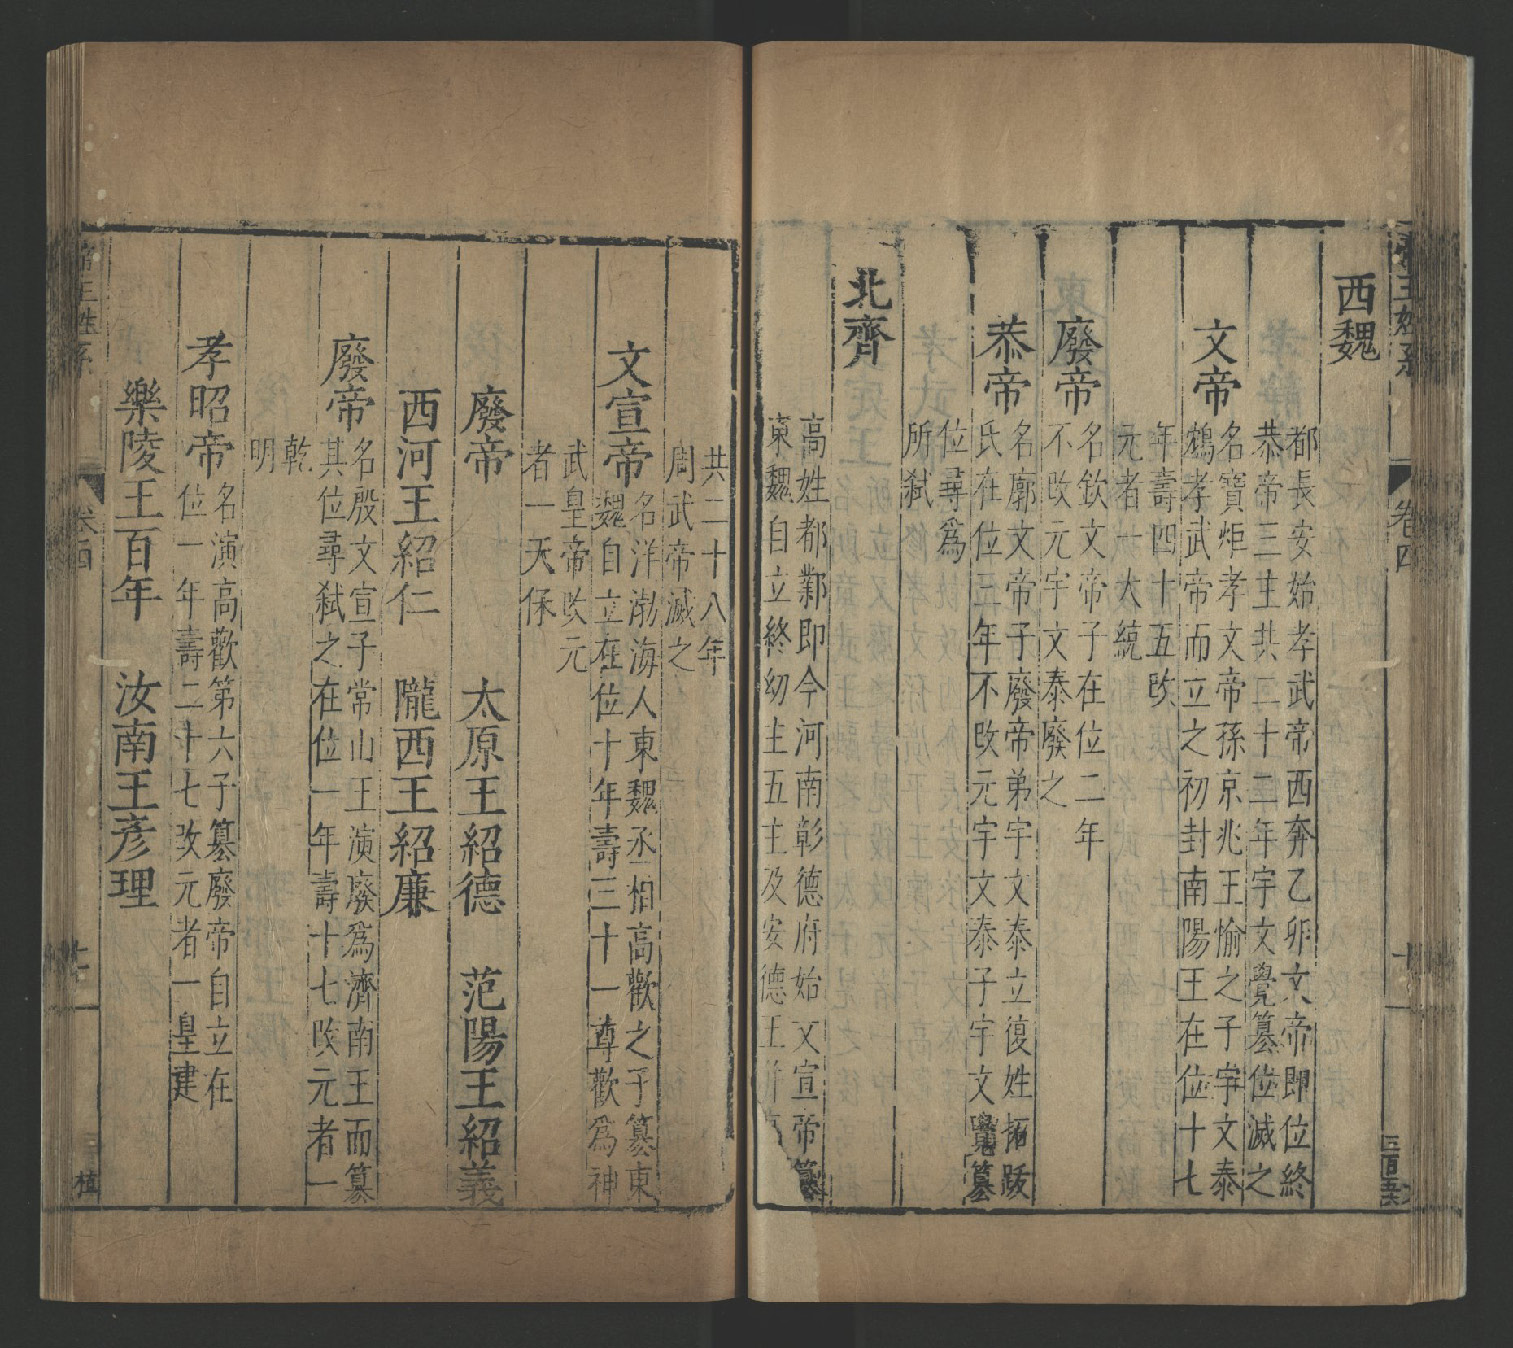 西魏
都長安始孝武帝西奔乙卯文帝即位終
恭帝三主共二十二年宇文覺篡位滅之
文帝
名寶炬孝文帝孫京兆王愉之子宇文泰
鴆孝武帝而立之初封南陽王在位十七
年壽四十五改
元者一大統
廢帝
名欽文帝子在位二年
不改元宇文泰廢之
恭帝
名廓文帝子廢帝弟宇文泰立復姓拓跋
氏在位三年不改元宇文泰子宇文覺篡
位尋爲
所弑
北齊
高姓都鄴即今河南彰德府始文宣帝篡
東魏自立終幼主五主及安德王
共二十八年
周武帝滅之
文宣帝
名洋渤海人東魏丞相高歡之子篡東
魏自立在位十年壽三十一尊歡爲神
武皇帝改元
者一天保
廢帝
太原王紹德
范陽王紹義
西河王紹仁
隴西王紹廉
廢帝
名殷文宣子常山王演廢爲濟南王而篡
其位尋弑之在位一年壽十七改元者一
乾
明
孝昭帝
名演高歡第六子篡廢帝自立在
位一年壽二十七改元者一皇建
樂陵王百年
汝南王彥理
帝王姓系
卷四
十一
植